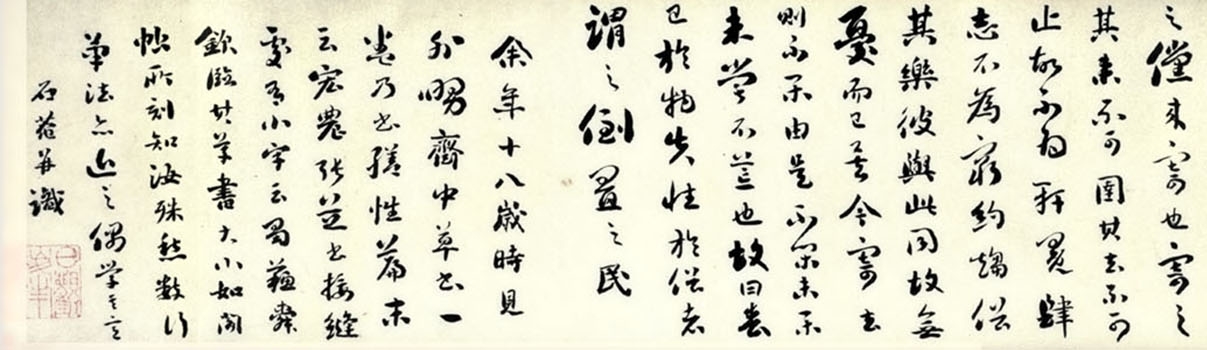 之儻來寄也寄之
其來不可圉其去不可
止故不為軒冕肆
志不為窮約趨俗
其樂彼與此同故無
憂而已矣今寄去
則不樂由是不樂未樂
未嘗不荒也故曰喪
已於物失性於俗者
謂之倒置之民
余年十八歲時見
外甥齋中草書一
卷乃書繕性篇末
云宏農張芝書接縫
處有小字云蜀蘇舜
欽臨其草書大小如閣
帖所刻知汝殊愁數行
筆法亦近之偶学之
石菴並識